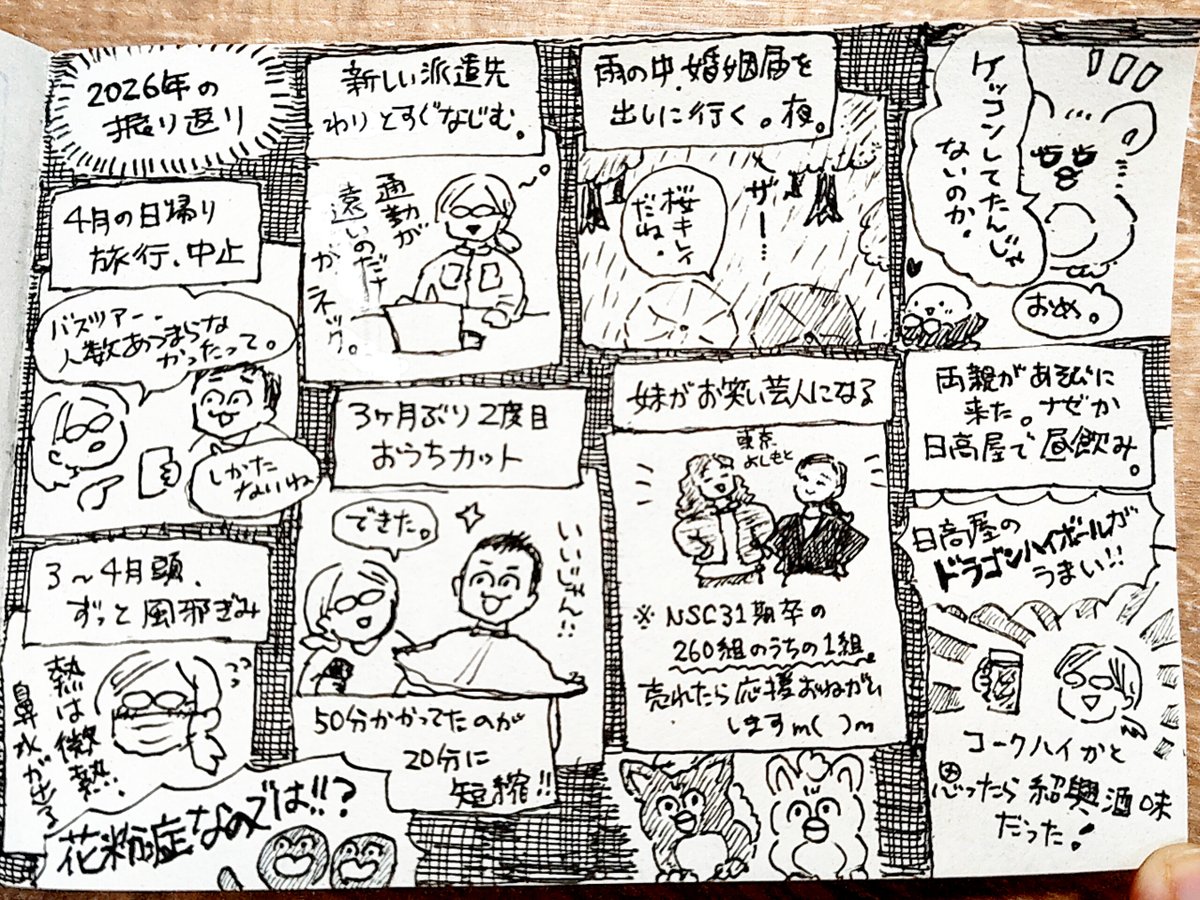 2026年の
振り返り
4月の日帰り
旅行、中止
バスツアー、
人数あつまらな
かったって。
しかた
ないね
3～4月頭、
ずっと風邪ぎみ
熱は微熱…
鼻水が出る
花粉症なのでは!!?
新しい派遣先
わりとすぐなじむ。
通勤が
遠いのだけ
がネック。
3ヶ月ぶり2度目
おうちカット
できた。
いいじゃん!!
50分かかってたのが
20分に
短縮!!
雨の中、婚姻届を
出しに行く。夜。
ザー…
桜キレイ
だね。
妹がお笑い芸人になる
東京
よしもと
※NSC31期卒の
260組のうちの1組。
売れたら応援おねがい
しますm( )m
ケッコンしてたんじゃ
ないのか。
おめ。
両親があそびに
来た。ナゼか
日高屋で昼飲み。
日高屋の
ドラゴンハイボールが
うまい!!
コークハイかと
思ったら紹興酒味
だった!